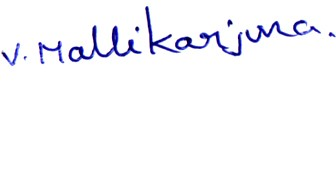 V. Mallikarjuna.